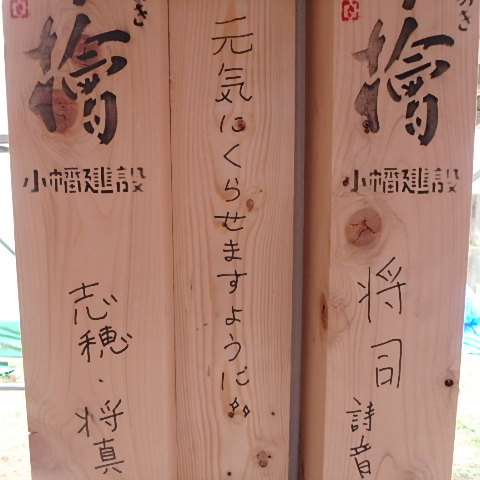 檜
小幡建設
将司
詩音
元気にくらせますように
檜
小幡建設
志穂・将真